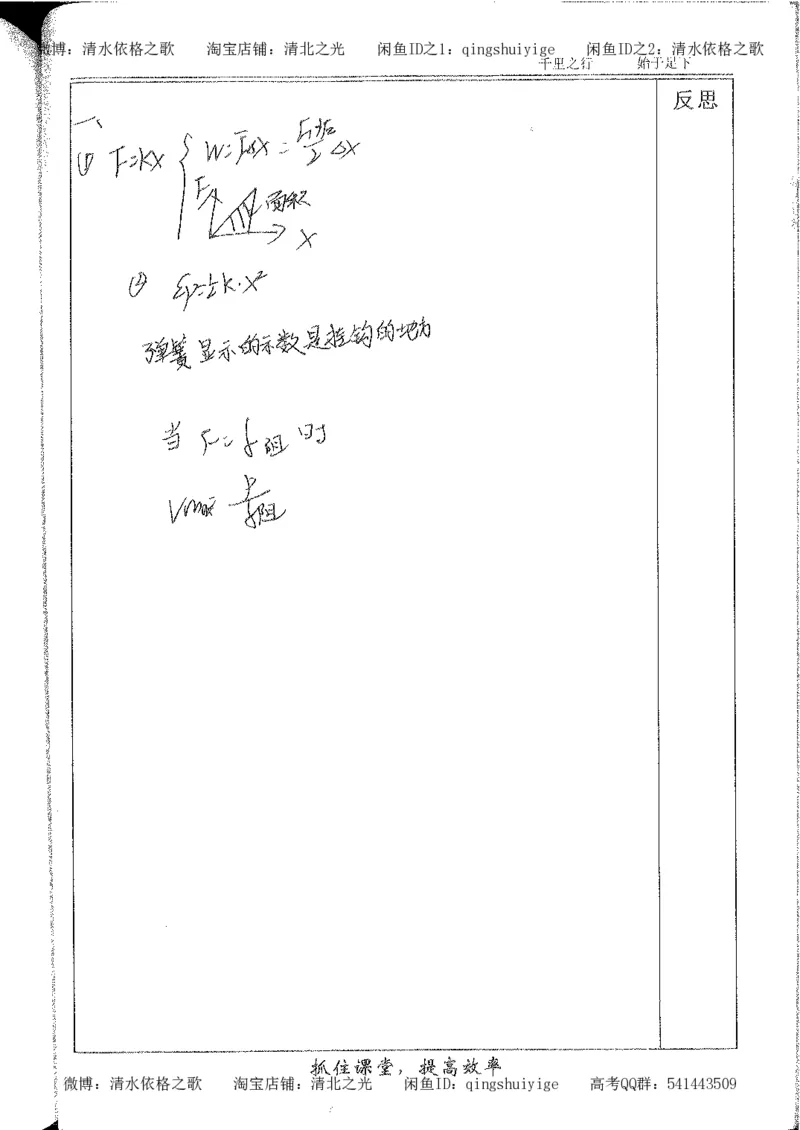 微博：清水依格之歌 淘宝店铺：清北之光 闲鱼ID之1：qingshuiyige 闲鱼ID之2：清水依格之歌
千里之行 始于足下
反思
一、
① F=kx { W=F̄Δx = (F₁+F₂)/2 Δx
F 面积
x
② Ep=½k·x²
弹簧显示的示数是挂钩的地方
当 F=f阻 时
Vmax= P/f阻
抓住课堂，提高效率
微博：清水依格之歌 淘宝店铺：清北之光 闲鱼ID：qingshuiyige 高考QQ群：541443509